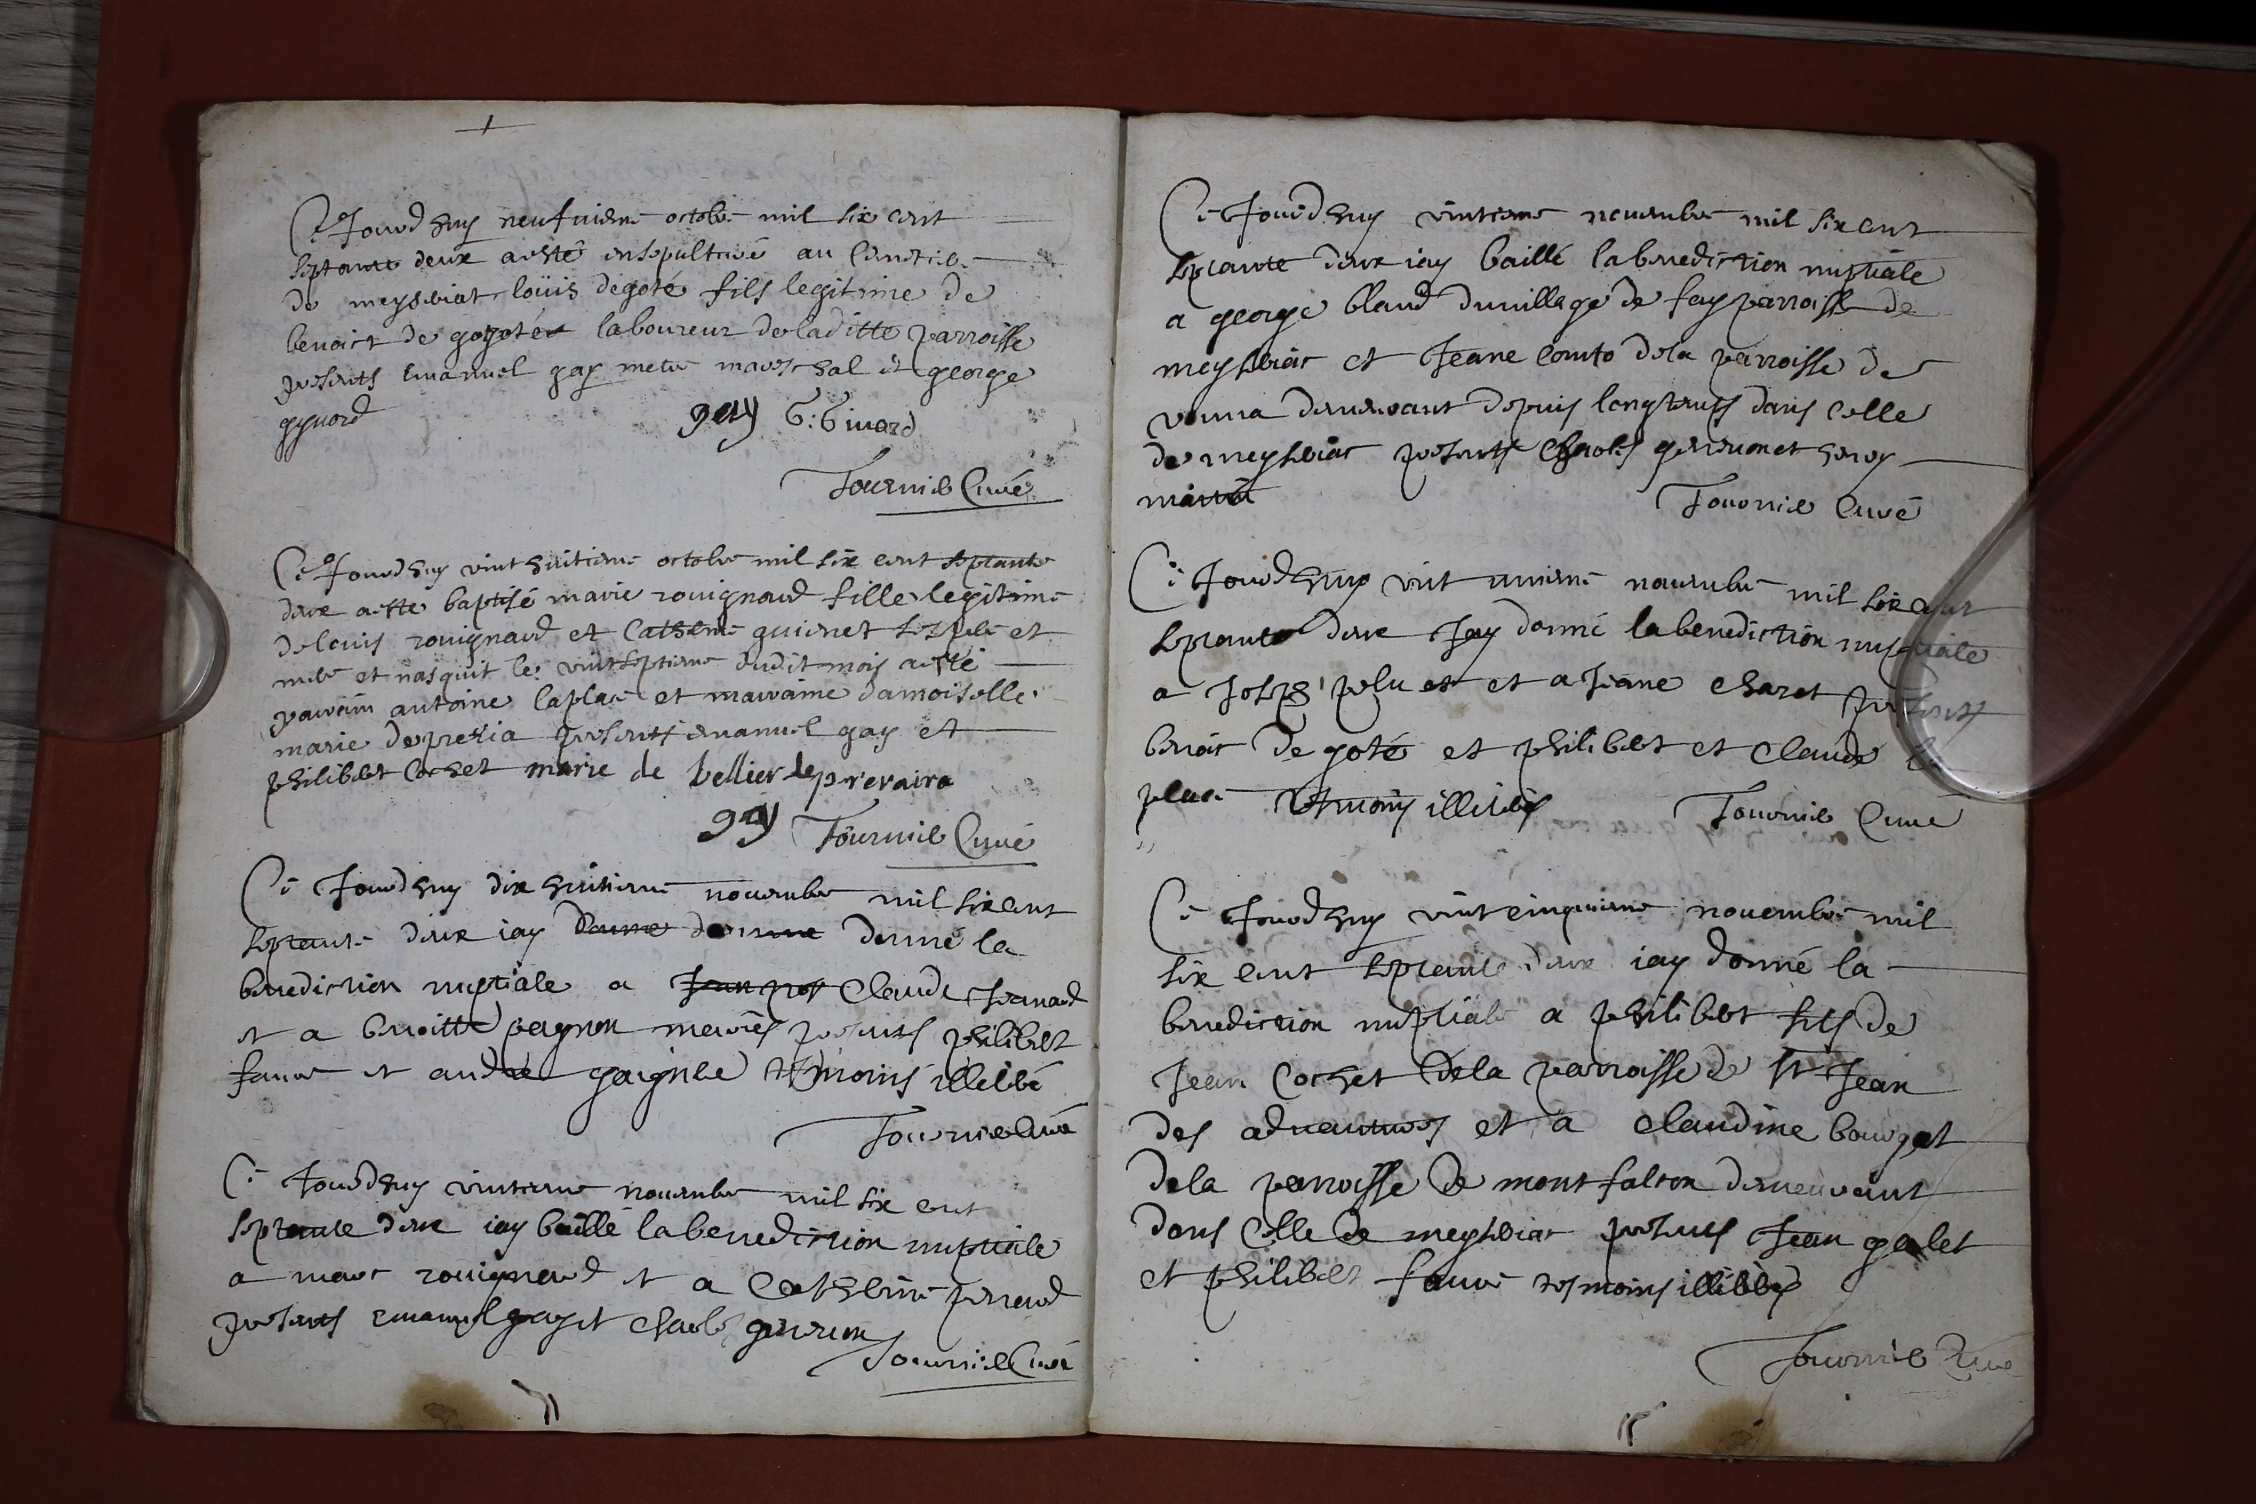 Ce Jourdhuy neufvieme octobre mil six cent
septante deux a esté ensepulturé au Cimetiere
de meyseriat loüis degoté fils legitime de
benoict de gogoter laboureur de laditte parroisse
presents Emanuel gay metre mareschal et george
gynard
gay G: Givard
Tournier Curé
Ce Jourdhuy vint huitieme octobre mil six cent septante
deux a este baptisé marie rouignard fille legitime
de louis rouignard et Catherine guionet ses pere et
mere et nasquit le vint septieme dudit mois a esté
parrain antoine laplace et marraine damoiselle
marie de presents emanuel gay et
philibert Cochet marie de bellier deprevaira
gay Tournier Curé
Ce Jourdhuy dix huitieme novembre mil six cent
septante deux iay donne donné la
benediction nuptiale a Jean Claude
et a benoitte pagnon mariés presents philibert
faure et andre tesmoins illeteré
Tournier Curé
Ce Jourdhuy vintieme novembre mil six cent
septante deux iay baillé la benediction nuptiale
a marc rouignard et a Catherine perraud
presents emanuel gay et charles
Tournier Curé
Ce Jourdhuy vintieme novembre mil six cent
septante deux iay baillé la benediction nuptiale
a george bland du village de fay parroisse de
meyseriat et Jeane de la parroisse de
demeurant depuis longtemps dans celle
de meyseriat presents Charles et
Tournier Curé
Ce Jourdhuy vint unieme novembre mil six cent
septante deux Jay donné la benediction nuptiale
a Joseph peluet et a Jeane charet presents
benoict de goté et philibert et Claude la
place tesmoins illiteres Tournier Curé
Ce Jourdhuy vint cinquieme novembre mil
six cent septante deux iay donné la
benediction nuptiale a philibert fils de
Jean Cochet de la parroisse de St Jean
des adventures et a Claudine bourget
de la parroisse de mont falcon demeurant
dans Celle de meyseriat presents Jean galet
et philibert faure tesmoins illiteres
Tournier Curé